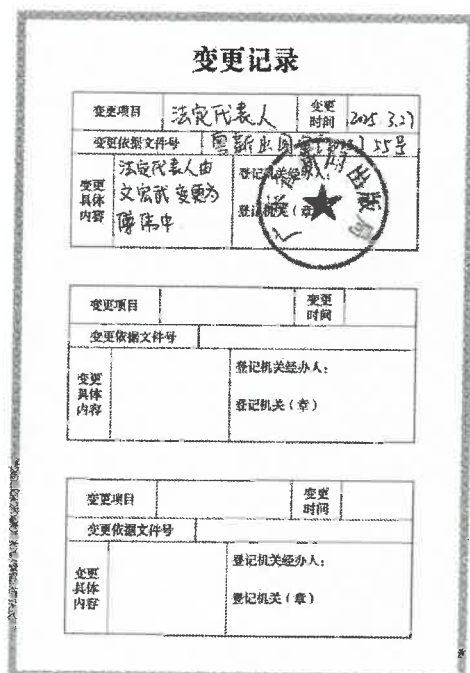 变更记录
变更项目 法定代表人 变更时间 2025.3.27
变更依据文件号 粤新出图 55号
变更具体内容
法定代表人由
文宏武变更为
傅伟中
登记机关经办人:
登记机关(章)
新闻出版局
变更项目 变更时间
变更依据文件号
变更具体内容
登记机关经办人:
登记机关(章)
变更项目 变更时间
变更依据文件号
变更具体内容
登记机关经办人:
登记机关(章)